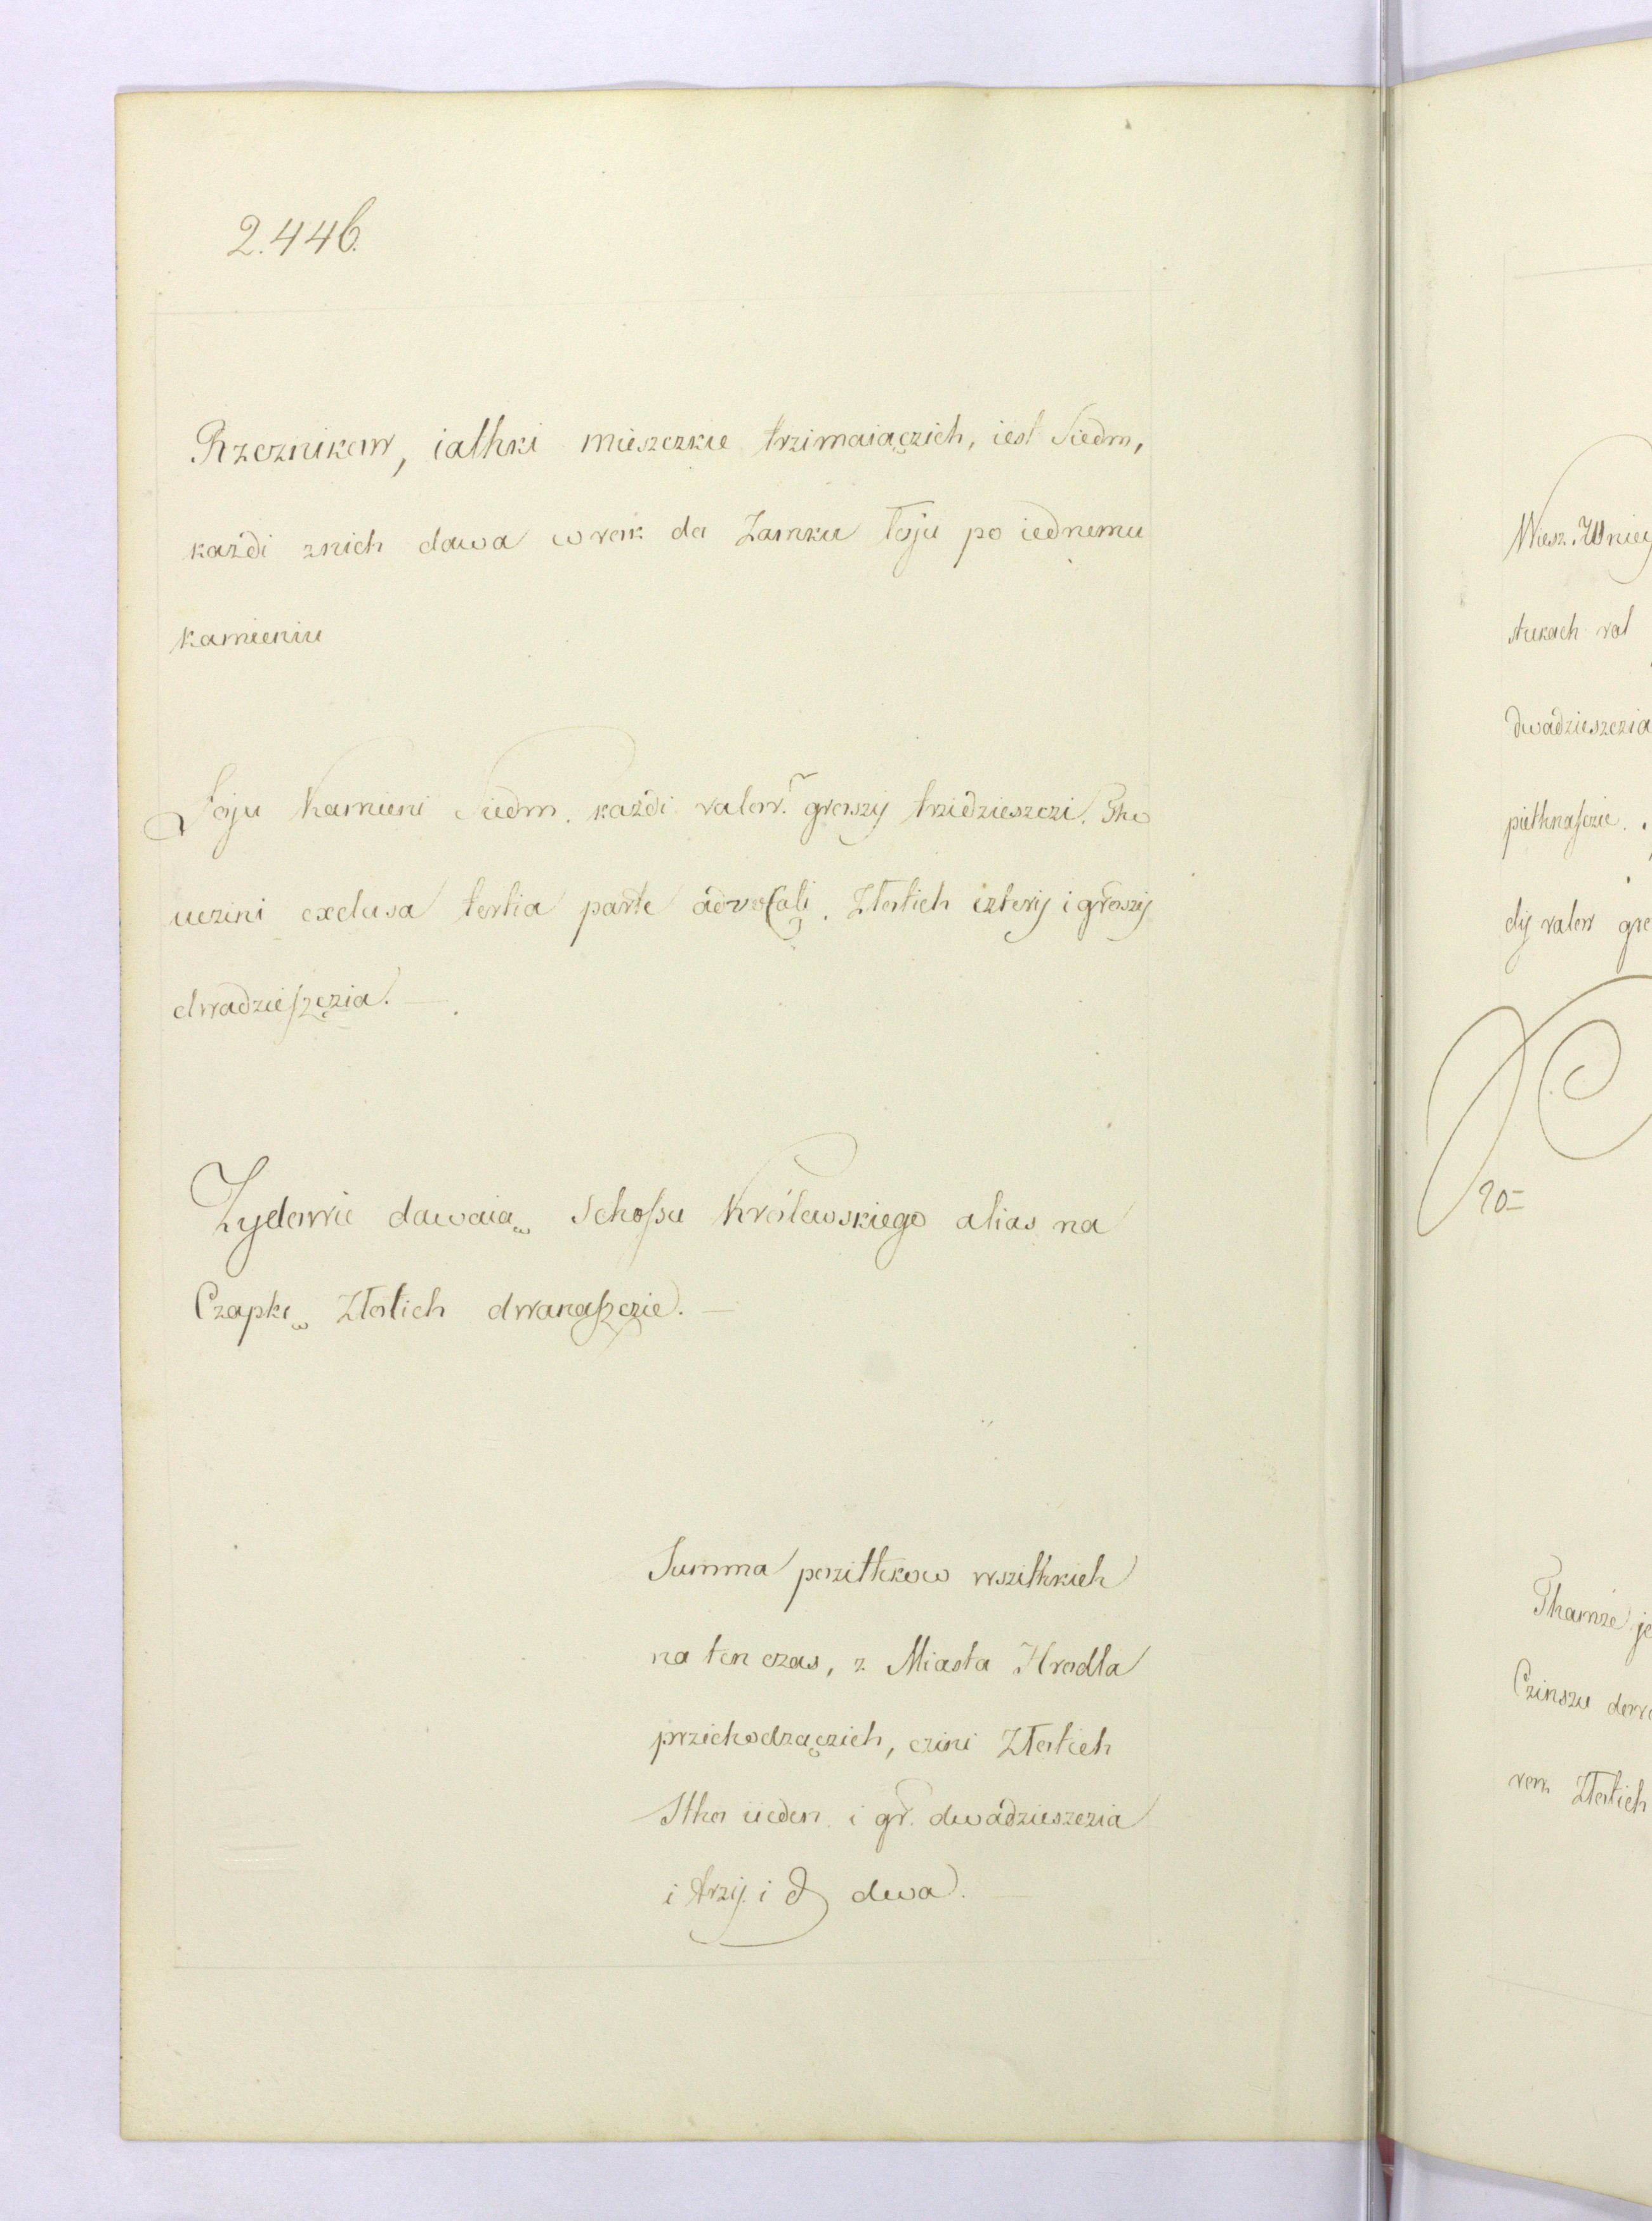 2.446.
Rzeznikow, iathki mieszczkie trzimaiączich, iest Siedm,
każdi znich dawa w rok do Zamku Łoju po iednemu
kamieniu
Łoju Kamieni Siedm. każdi valor. groszij trzidzieszczi. Tho
uczini exclusa tertia parte advocati. Złotich czterij i groszij
dwadzieszczia.
Zydowie dawaią Schoßu Królewskiego alias na
Czapkę Złotich dwanaszczie.
Summa pozithkow wszithkich
na ten czas, z Miasta Hrodła
przichodzączich, czini Złotich
Stho ieden i gr. dwadzieszczia
i trzij. i d dwa.
Wiesz. Wniey
stukach rol
dwadzieszczia
piethnascie.
dij valor gro
20=
Thamże je
Czinszu doro
rok Złotich